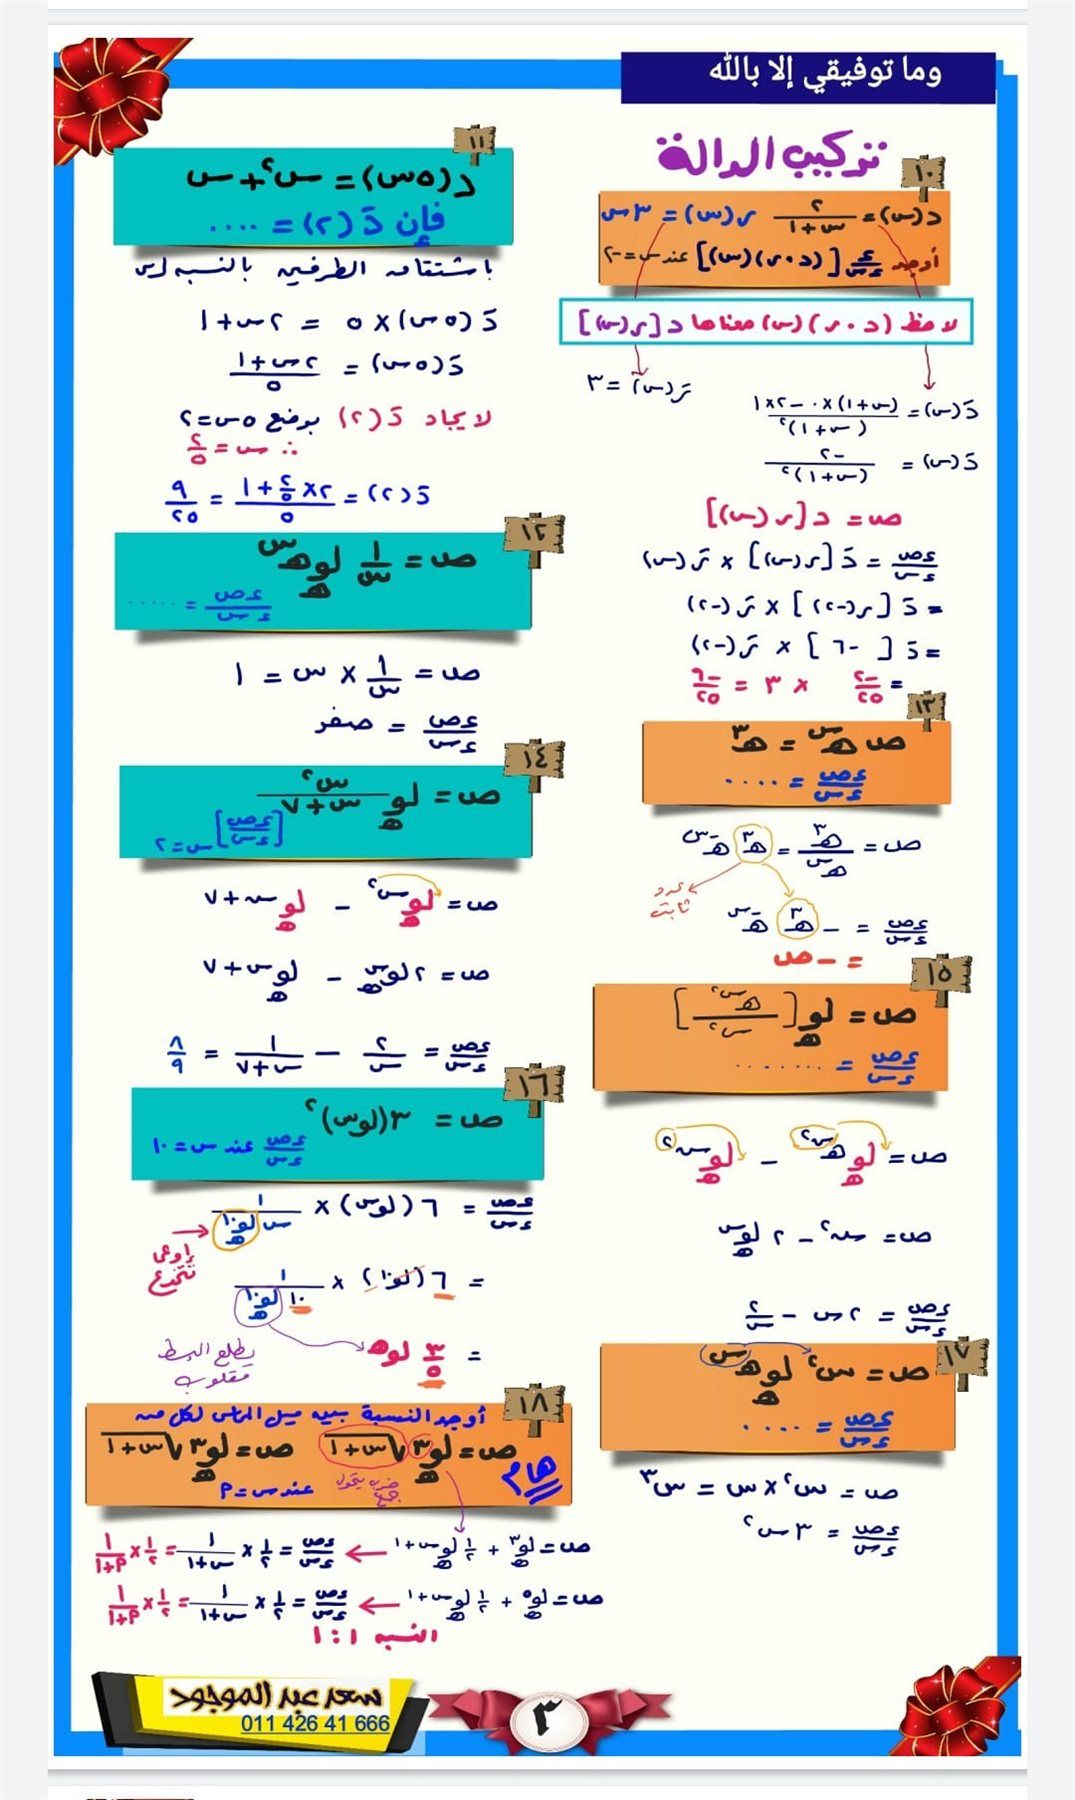 وما توفيقي إلا بالله
تركيب الدالة
١٠
د(س) = ٢/(س+١) ر(س) = ٣س
أوجد ءص/ءس [(د∘ر)(س)] عند س = -٢
لاحظ (د∘ر)(س) معناها د[ر(س)]
رَ(س) = ٣
دَ(س) = ((س+١)×٠ - ٢×١)/(س+١)٢
دَ(س) = -٢/(س+١)٢
ص = د[ر(س)]
ءص/ءس = دَ[ر(س)] × رَ(س)
= دَ[ر(-٢)] × رَ(-٢)
= دَ[-٦] × رَ(-٢)
= -٢/٢٥ × ٣ = -٦/٢٥
١١
د(٥س) = س٢ + س
فإن دَ(٢) = ....
باشتقاق الطرفين بالنسبه لـ س
دَ(٥س) × ٥ = ٢س + ١
دَ(٥س) = (٢س+١)/٥
لايجاد دَ(٢) بوضع ٥س = ٢
∴ س = ٢/٥
دَ(٢) = (٢×٢/٥ + ١)/٥ = ٩/٢٥
١٢
ص = ١/س لو_هـ هـ^س
ءص/ءس = .....
ص = ١/س × س = ١
ءص/ءس = صفر
١٣
ص هـ^س = هـ^٣
ءص/ءس = ....
ص = هـ^٣/هـ^س = هـ^٣ هـ^-س
عدد ثابت
ءص/ءس = - هـ^٣ هـ^-س
= - ص
١٤
ص = لو_هـ س٢/(س+٧)
[ءص/ءس] س=٢
ص = لو_هـ س٢ - لو_هـ س+٧
ص = ٢ لو_هـ س - لو_هـ س+٧
ءص/ءس = ٢/س - ١/(س+٧) = ٨/٩
١٥
ص = لو_هـ [هـ^س٢/س٢]
ءص/ءس = ........
ص = لو_هـ هـ^س٢ - لو_هـ س٢
ص = س٢ - ٢ لو_هـ س
ءص/ءس = ٢س - ٢/س
١٦
ص = ٣(لوس)٢
ءص/ءس عند س = ١٠
ءص/ءس = ٦(لوس) × ١/(س لو_هـ ١٠)
اوعى تتخدع
= ٦(لو١٠) × ١/(١٠ لو_هـ ١٠)
يطلع البسط مقلوب
= ٣/٥ لوهـ
١٧
ص = س٢ لو_هـ هـ^س
ءص/ءس = ....
ص = س٢ × س = س٣
ءص/ءس = ٣س٢
١٨
أوجد النسبة بين ميل المماس لكل من
ص = لو_هـ ٣√(س+١) ص = لو_هـ ٣√(س+١)
هام
ضرب يتحول جمع
عند س = م
ص = لو_هـ ٣ + ١/٢ لو_هـ س+١ ← ءص/ءس = ١/٢ × ١/(س+١) = ١/٢ × ١/(م+١)
ص = لو_هـ ٥ + ١/٢ لو_هـ س+١ ← ءص/ءس = ١/٢ × ١/(س+١) = ١/٢ × ١/(م+١)
النسبه ١:١
سعد عبد الموجود
011 426 41 666
٣